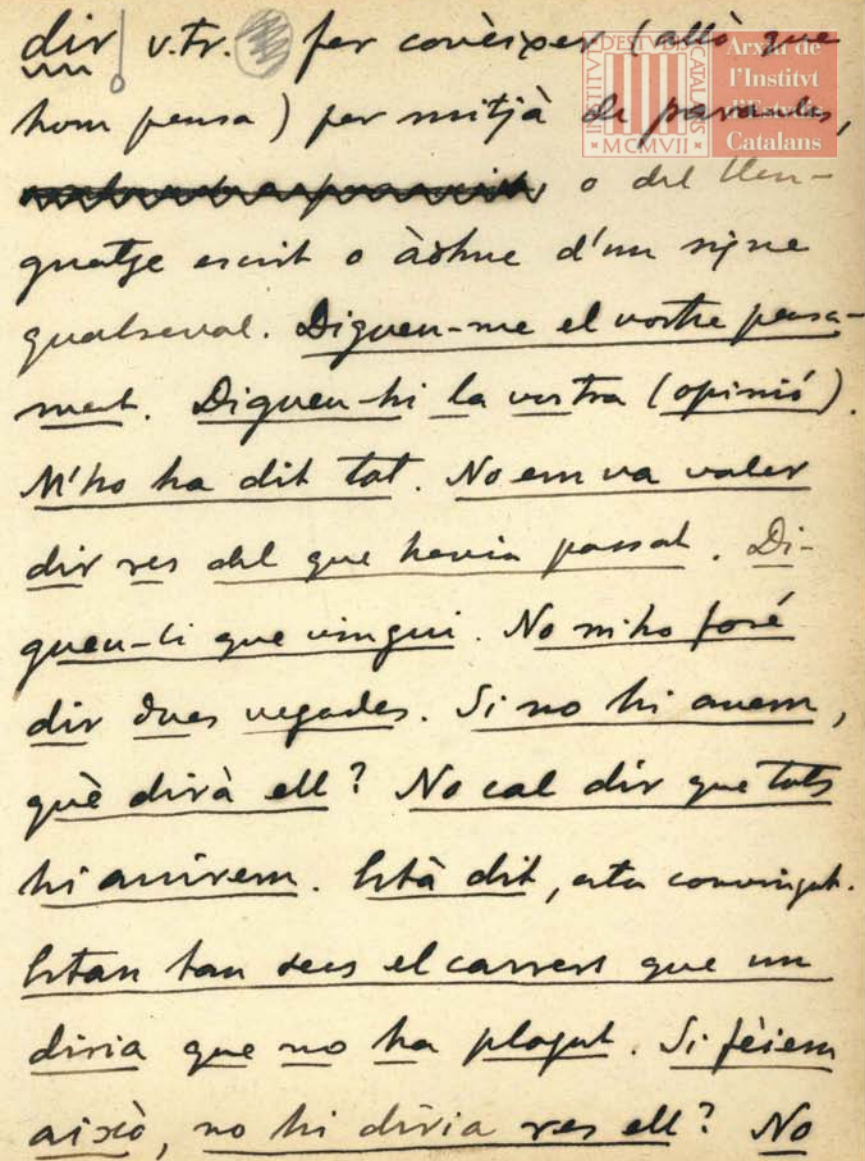 dir v.tr. fer conèixer (allò que
hom pensa) per mitjà de paraules,
o del llen-
guatge escrit o àdhuc d'un signe
qualsevol. Digueu-me el vostre pensa-
ment. Digueu-hi la vostra (opinió).
M'ho ha dit tot. No em va voler
dir res del que havia passat. Di-
gueu-li que vingui. No m'ho faré
dir dues vegades. Si no hi anem,
què dirà ell? No cal dir que tots
hi anirem. Està dit, està convingut.
Estan tan secs els carrers que un
diria que no ha plogut. Si fèiem
això, no hi diria res ell? No
INSTITVT D'ESTVDIS CATALANS
MCMVII
Arxiu de
l'Institvt
d'Estvdis
Catalans